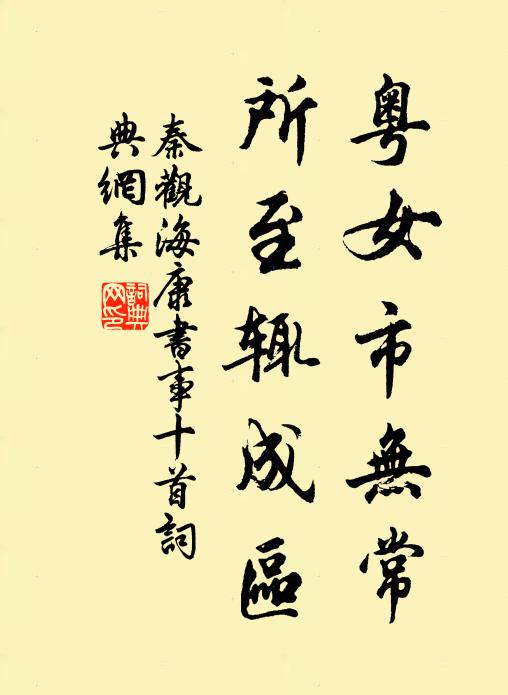 粤女市無常
所至辄成區
秦觀海康書事十首詞
典網集
詞典网印